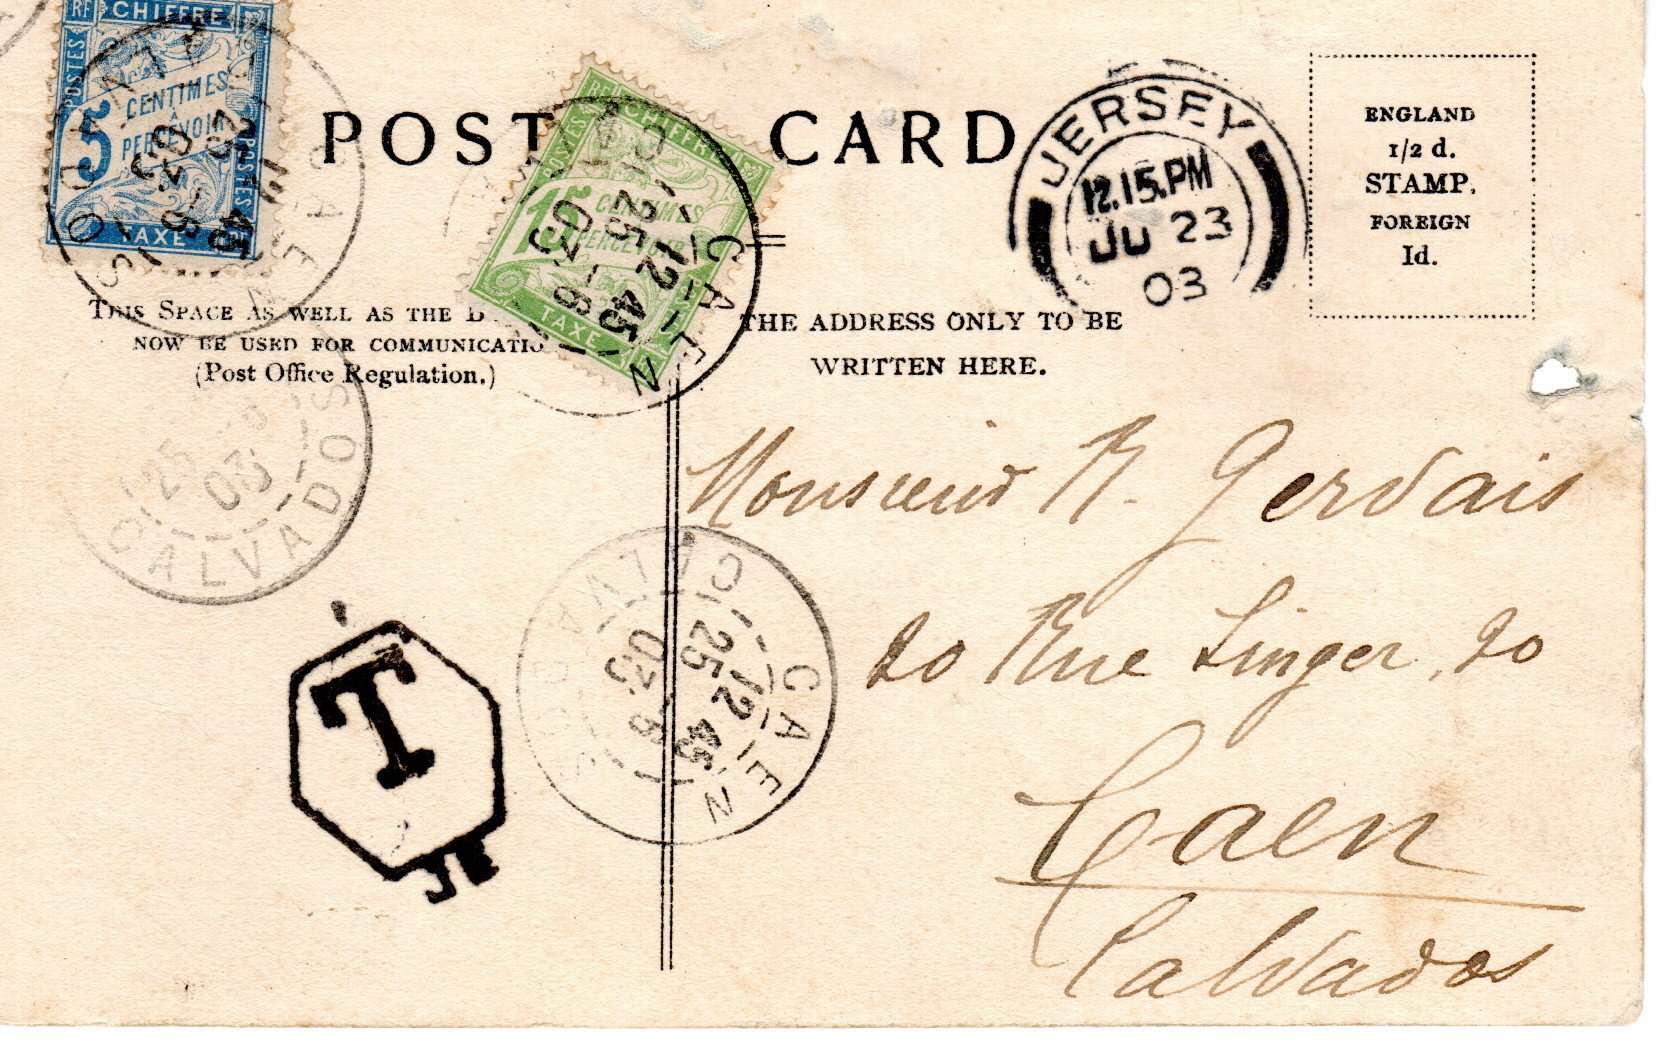 RF CHIFFRE
POSTES
5 CENTIMES
À
PERCEVOIR
POSTES
TAXE RF
CAEN
CALVADOS
12 45
25 -6
03
POST CARD
RF CHIFFRE
POSTES
15 CENTIMES
À
PERCEVOIR
TAXE RF
CAEN
12 45
25 -6
03
JERSEY
12.15.PM
JU 23
03
ENGLAND
1/2 d.
STAMP.
FOREIGN
1d.
THIS SPACE AS WELL AS THE
NOW BE USED FOR COMMUNICATIO
(Post Office Regulation.)
THE ADDRESS ONLY TO BE
WRITTEN HERE.
25
03
CALVADOS
Monsieur R. Gervais
20 Rue Singer, 20
Caen
Calvados
CAEN
12 45
25 -6
03
CALVADOS
T
JE